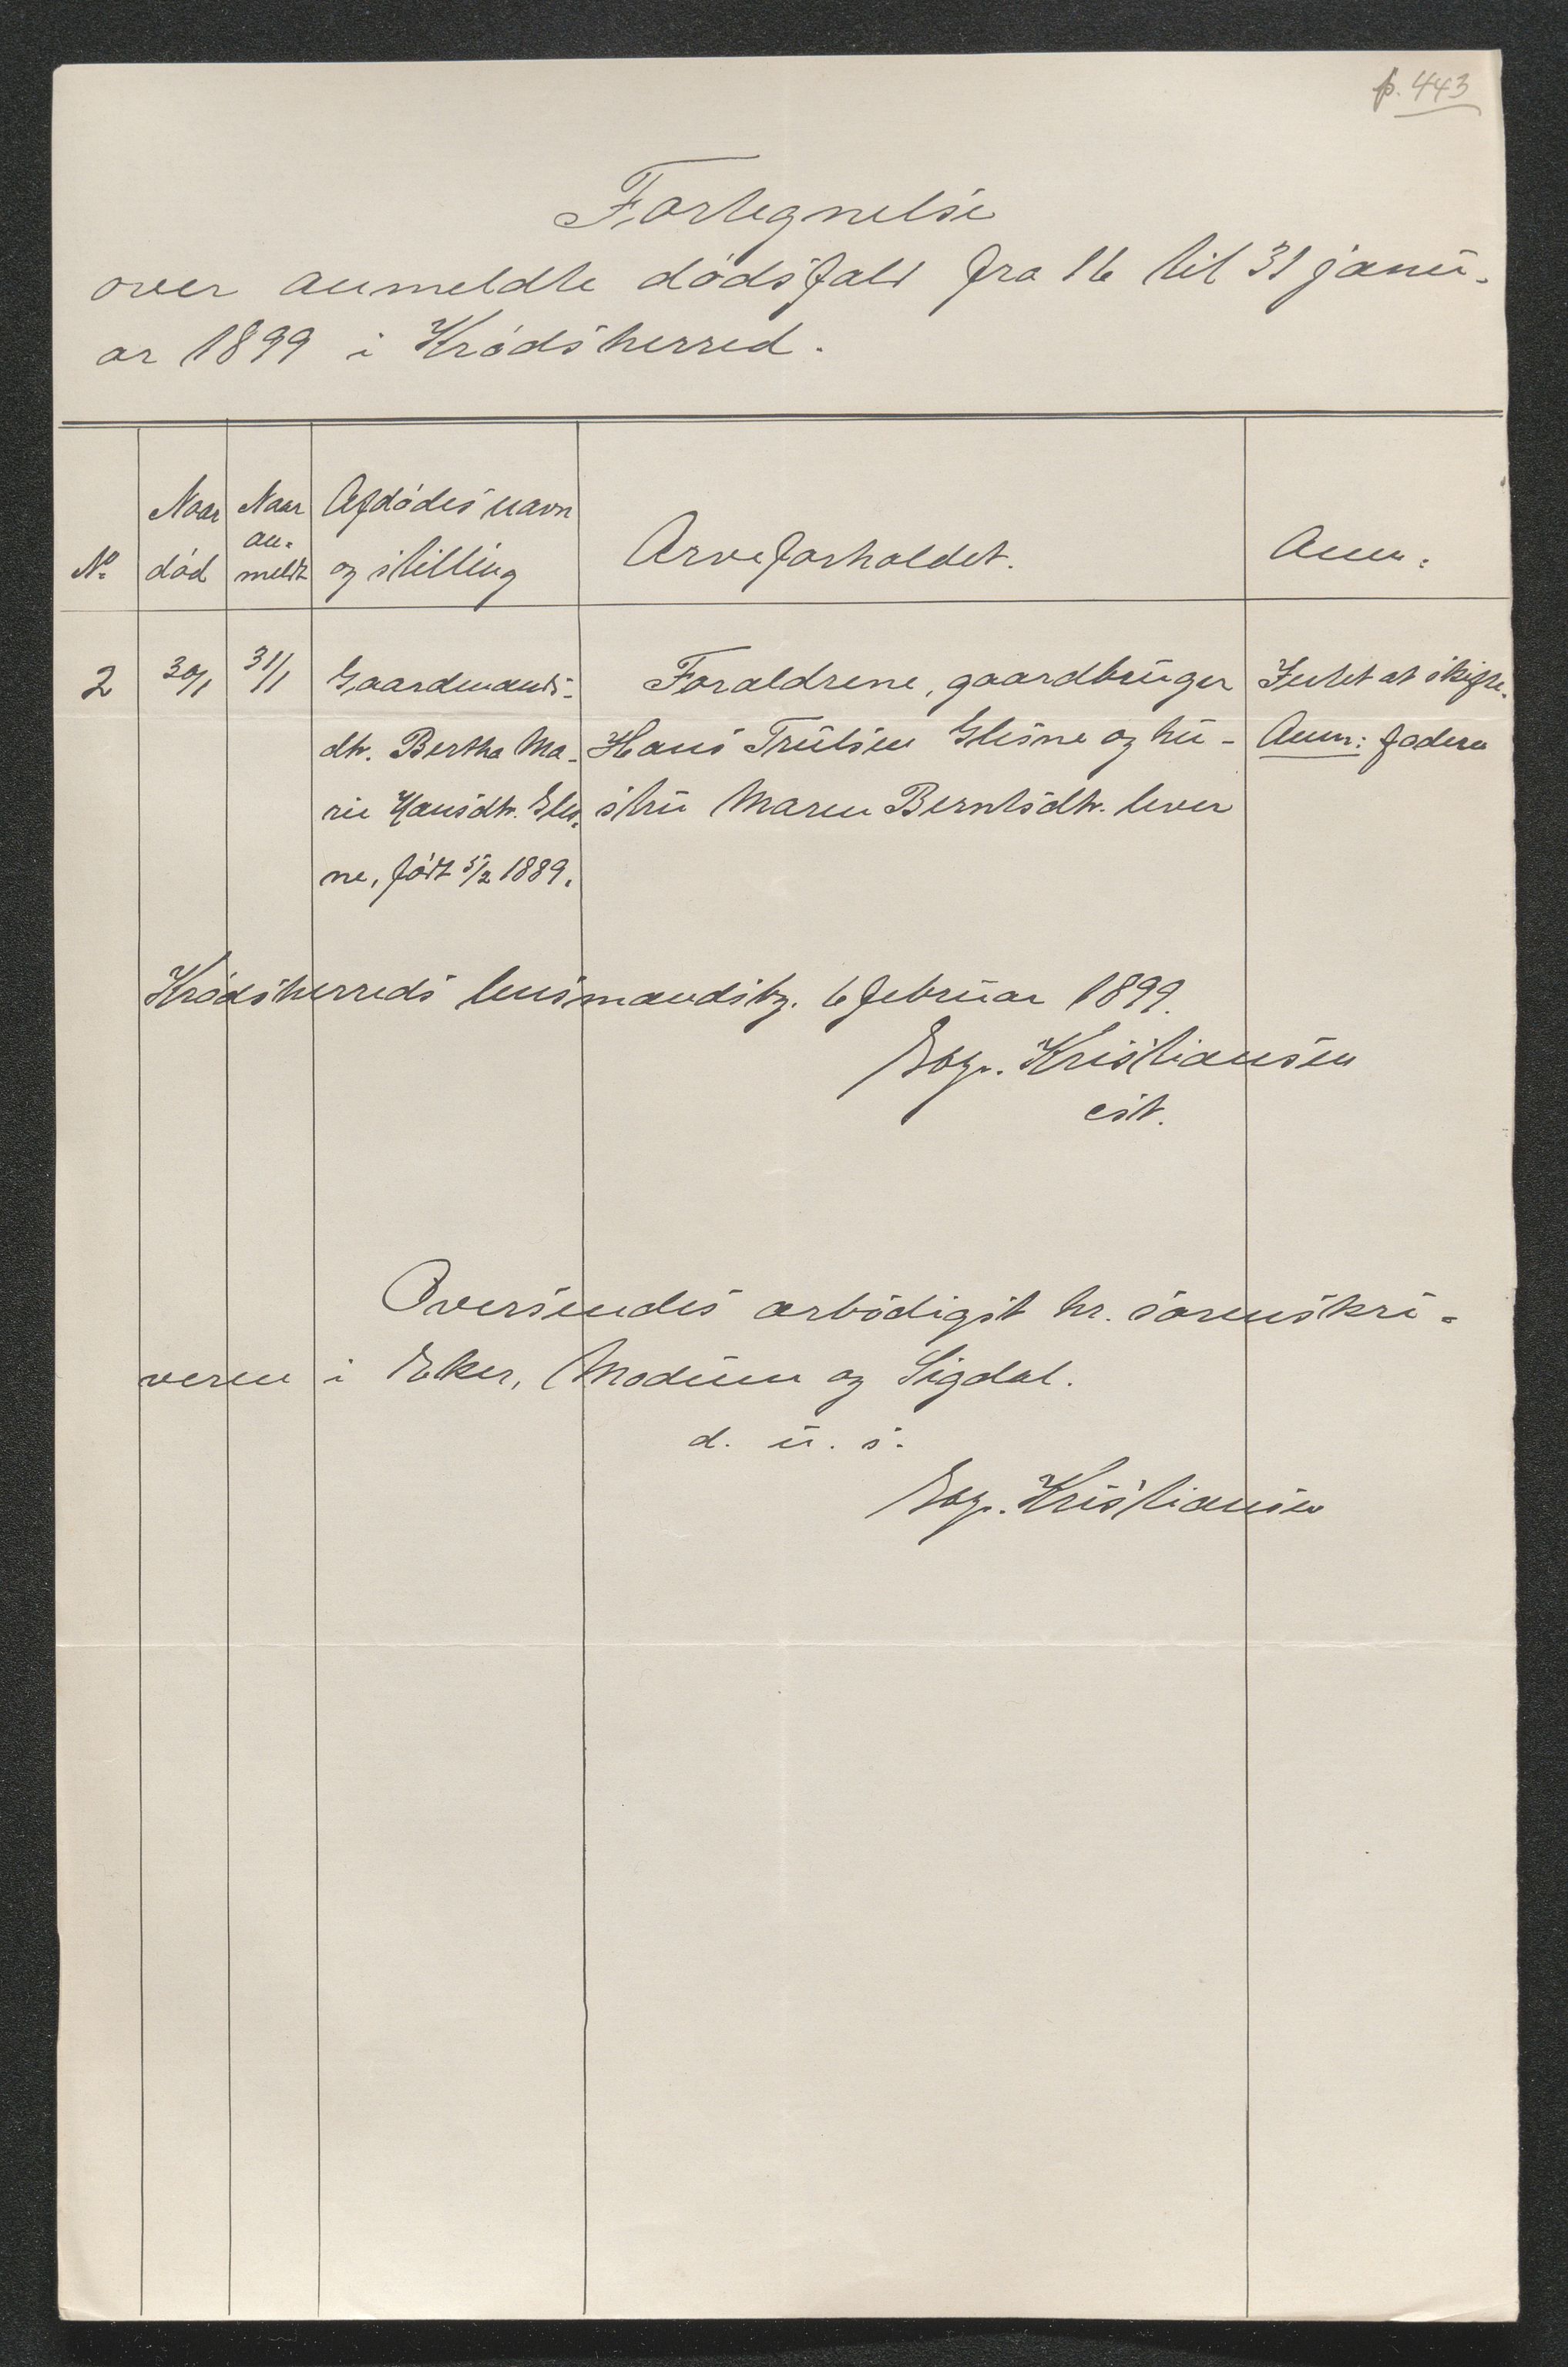 p. 443
Fortegnelse
over anmeldte dødsfald fra 16 til 31 janu-
ar 1899 i Krødsherred.
No
Naar
død
Naar
an-
meldt
Afdødes navn
og stilling
Arveforholdet.
Anm:
2
30/1
31/1
Gaardmands-
dtr. Bertha Ma-
rie Hansdtr. Gles-
ne, født 5/2 1889.
Forældrene, gaardbruger
Hans Trulsen Glesne og hu-
stru Maren Berntsdtr. lever
Intet at skifte.
Anm: faderen
Krødsherreds lensmandsbg. 6 februar 1899.
Kristiansen
cst.
Oversendes ærbødigst hr. sorenskri-
veren i Eker, Modum og Sigdal.
d. u. s.
Kristiansen